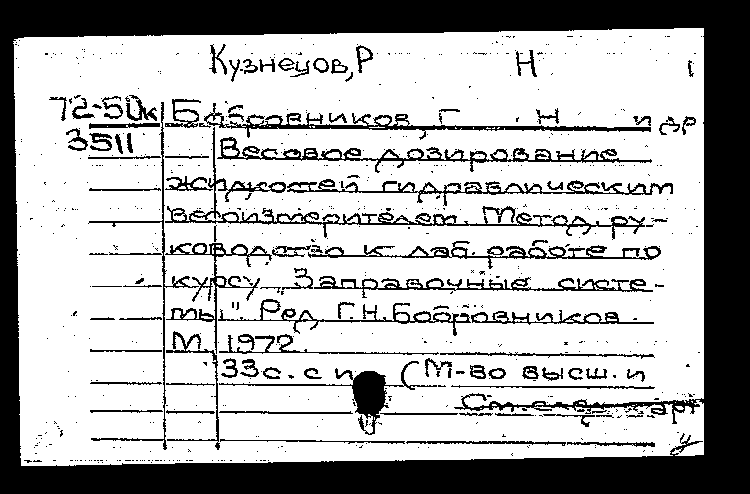 Кузнецов, Р Н 1
72-50к Бобровников, Г. Н и др
3511 Весовое дозирование
жидкостей гидравлическим
весоизмерителем. Метод. ру-
ководство к лаб. работе по
курсу „Заправочные систе-
мы". Ред. Г.Н. Бобровников.
М., 1972.
33с. с ил. (М-во высш. и
См. след. карт
у